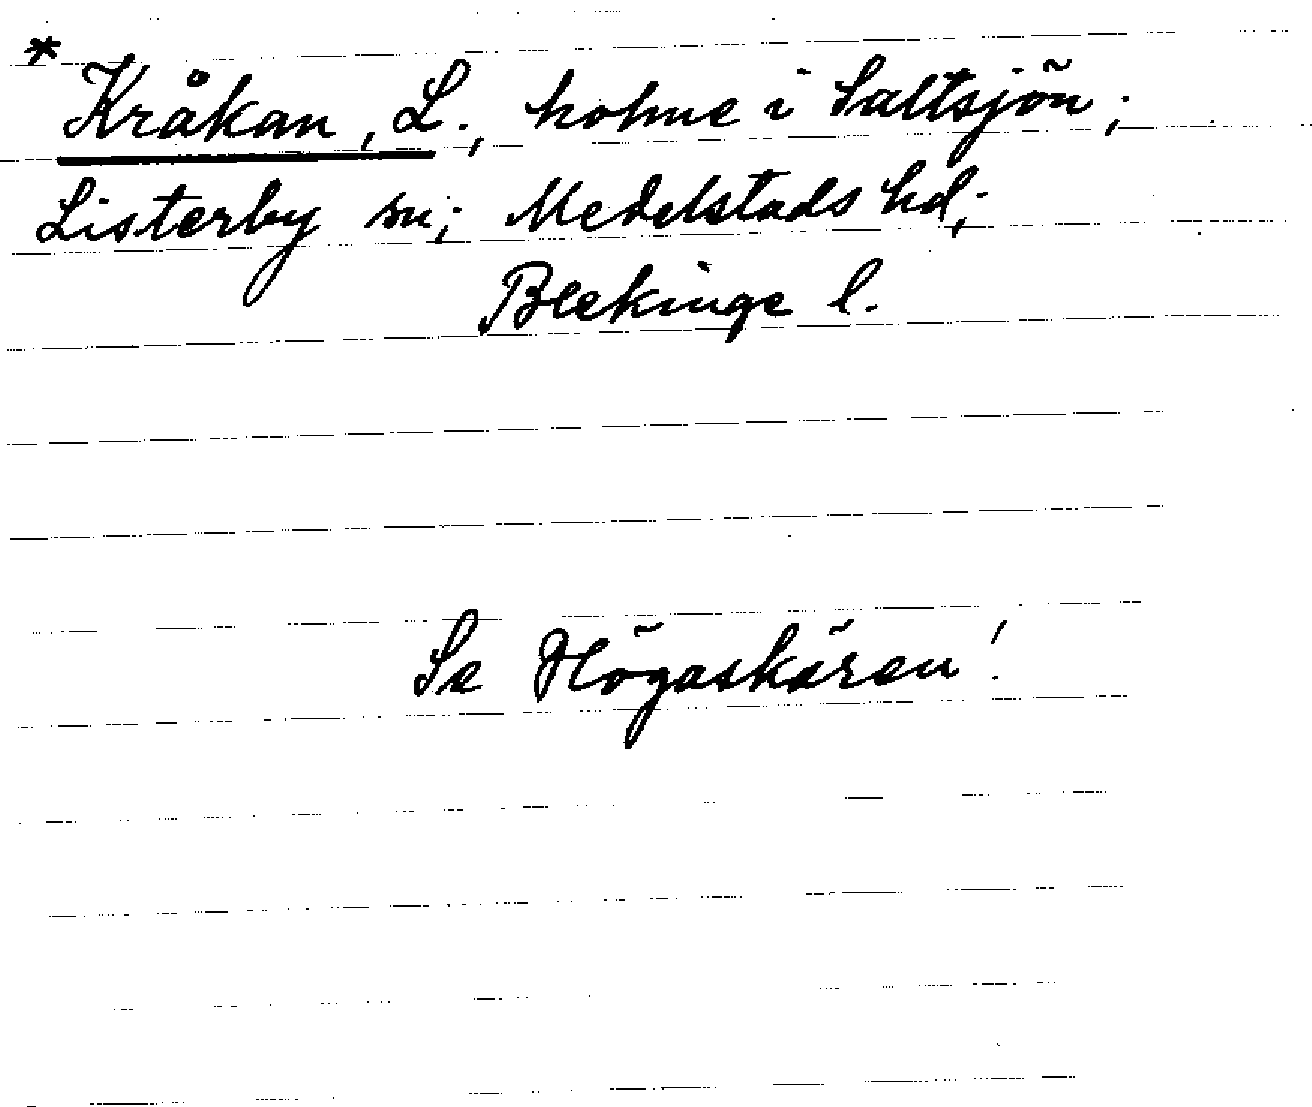 * Kråkan, L., holme i Saltsjön;
Listerby sn; Medelstads hd;
Blekinge l.
Se Högaskären!